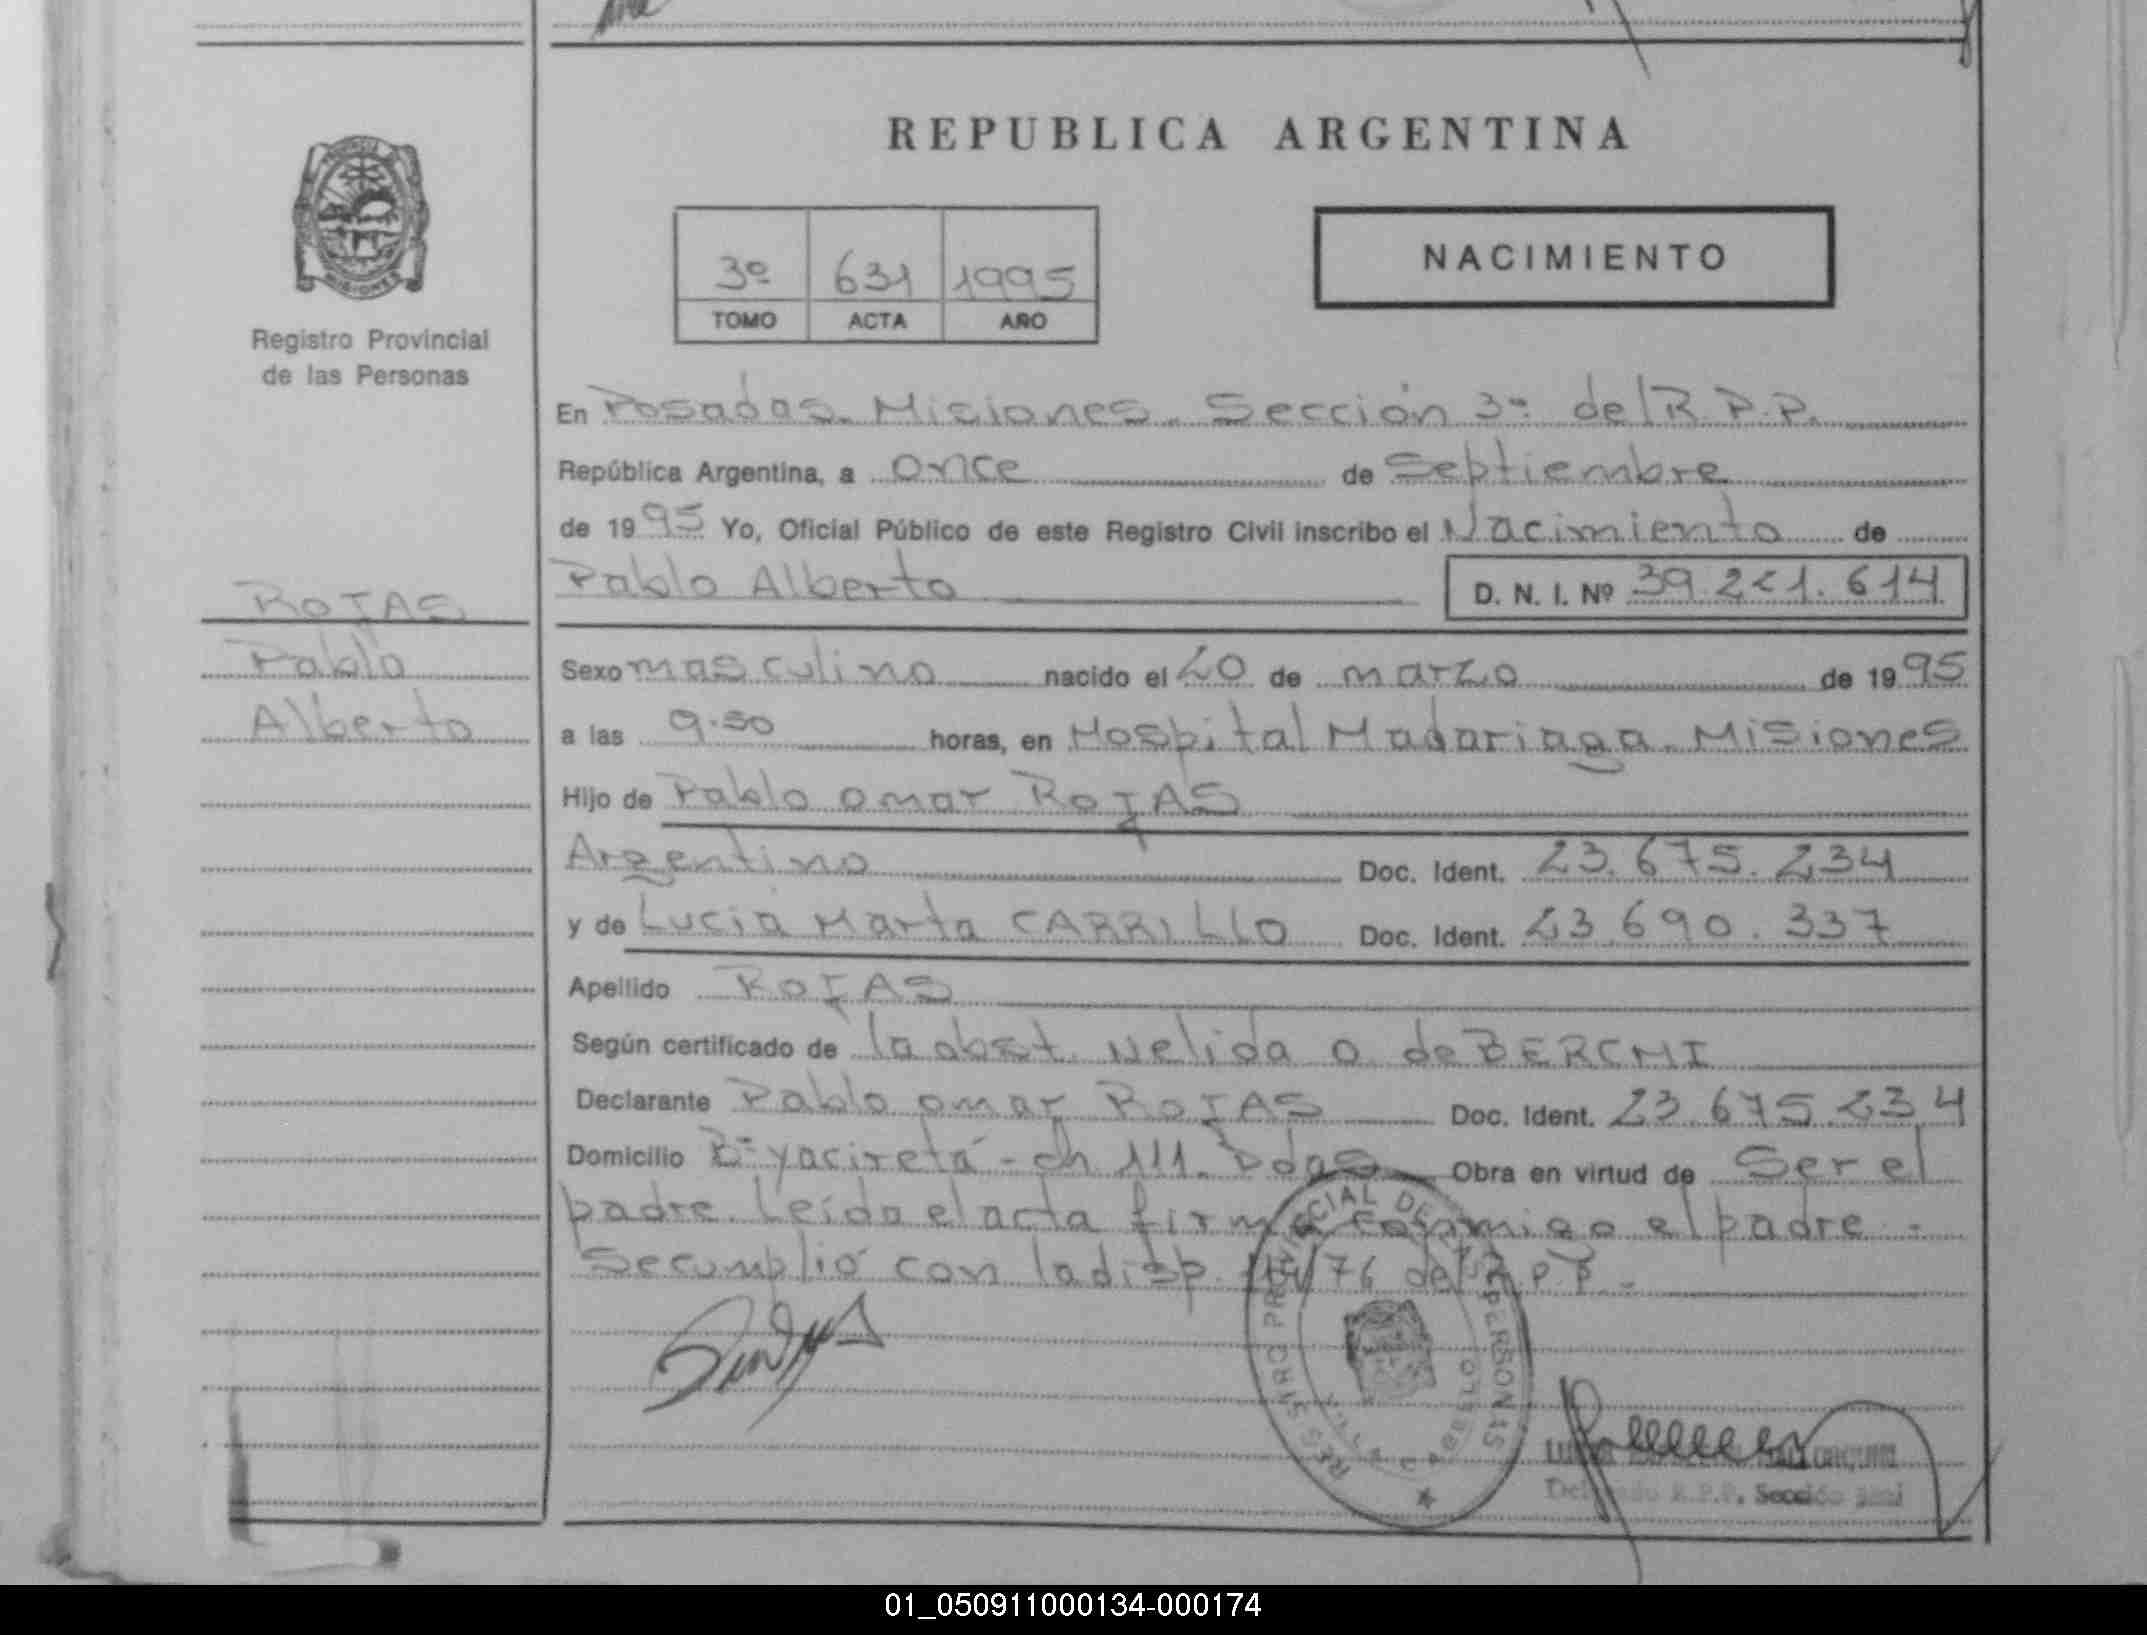 REPUBLICA ARGENTINA
Registro Provincial
de las Personas
3º 631 1995
TOMO ACTA AÑO
NACIMIENTO
En Posadas. Misiones. Sección 3ª del R.P.P.
República Argentina, a once de Septiembre
de 1995 Yo, Oficial Público de este Registro Civil inscribo el Nacimiento de
Pablo Alberto D. N. I. Nº 39.221.614
ROJAS
Pablo
Alberto
Sexo masculino nacido el 20 de marzo de 1995
a las horas, en Hospital Madariaga. Misiones
Hijo de Pablo omar ROJAS
Argentino Doc. Ident. 23.675.234
y de Lucia Marta CARRILLO Doc. Ident. 23.690.337
Apellido ROJAS
Según certificado de la obst. Nelida O. de
Declarante Pablo omar ROJAS Doc. Ident. 23.675.234
Domicilio Bº yacireta - ch 111. Pdas Obra en virtud de Ser el
padre. Leída el acta firma conmigo el padre.-
Se cumplió con la disp. /76 del R.P.P.-
REGISTRO PROVINCIAL DE LAS PERSONAS
VILLA CABELLO
Delegado R.P.P. Sección
01_050911000134-000174